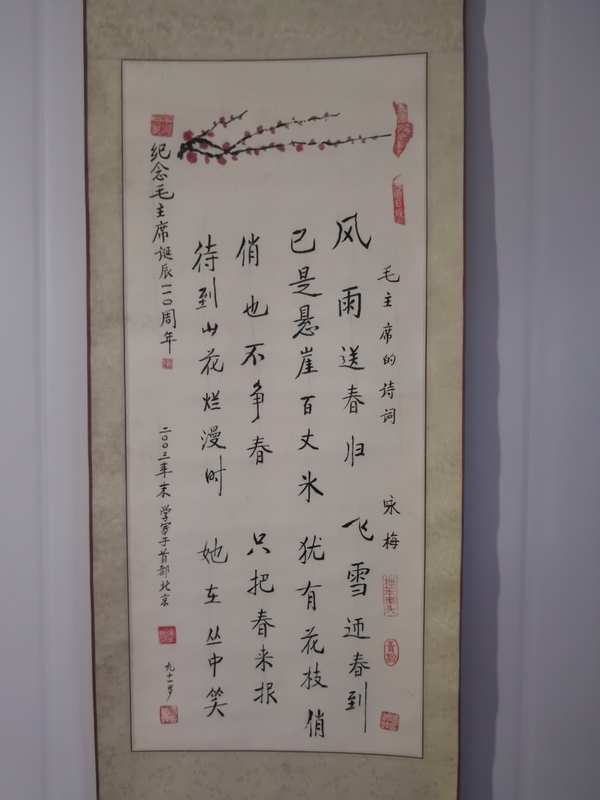 毛主席的诗词 咏梅
风雨送春归 飞雪迎春到
已是悬崖百丈冰 犹有花枝俏
俏也不争春 只把春来报
待到山花烂漫时 她在丛中笑
纪念毛主席诞辰一一〇周年
二〇〇三年末 学写于首都北京
九十一岁